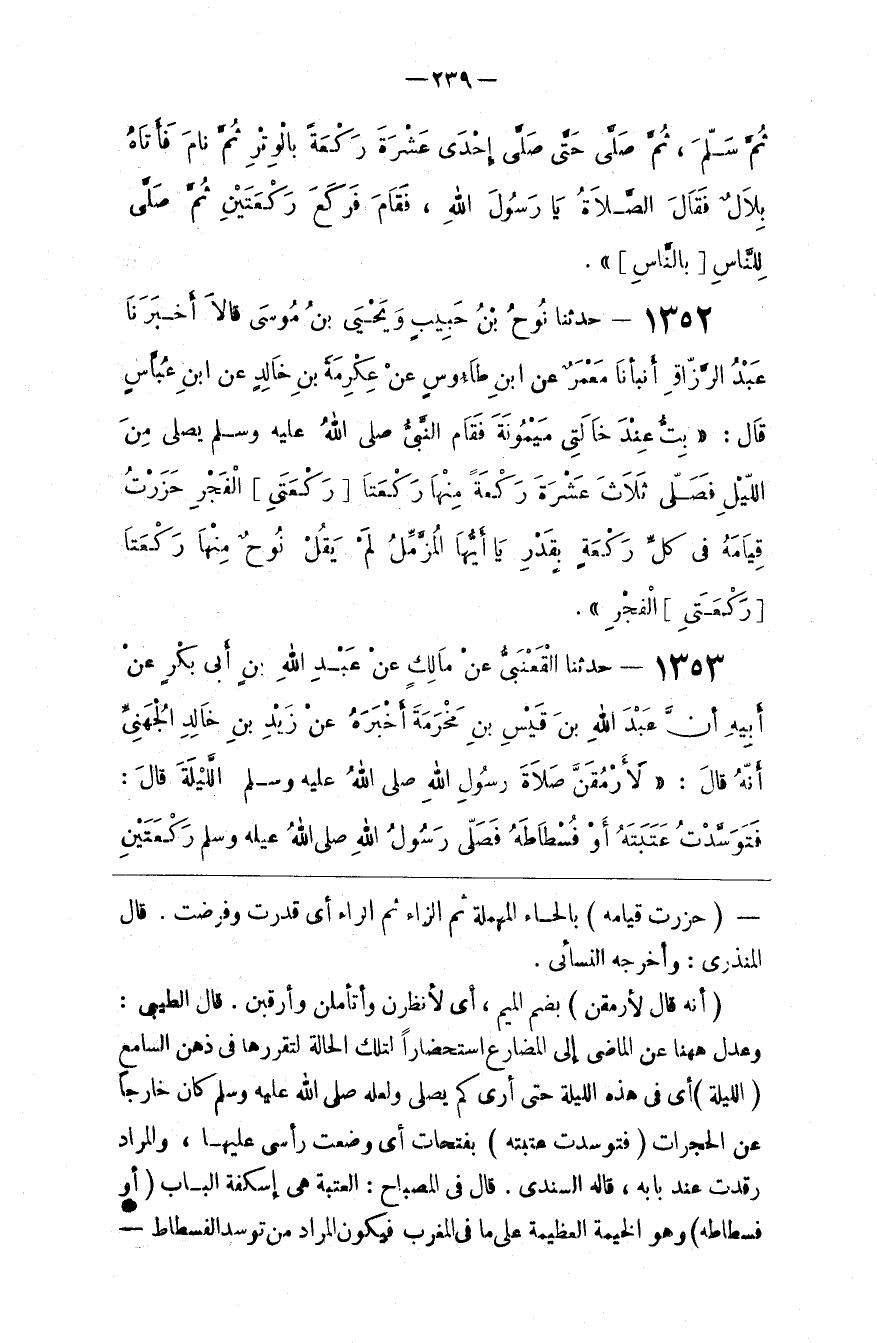 — ٢٣٩ —
ثُمَّ سَلَّمَ ، ثُمَّ صَلَّى حَتَّى صَلَّى إِحْدَى عَشْرَةَ رَكْعَةً بِالْوِتْرِ ثُمَّ نامَ فَأَتَاهُ
بِلاَلٌ فَقَالَ الصَّلاَةُ يَا رَسُولَ اللهِ ، فَقَامَ فَرَكَعَ رَكْعَتَيْنِ ثُمَّ صَلَّى
لِلنَّاسِ [ بالنَّاسِ ] » .
١٣٥٢ — حدثنا نُوحُ بْنُ حَبِيبٍ وَيَحْيَى بنُ مُوسَى قالاَ أَخبَرَنَا
عَبْدُ الرَّزَّاقِ أَنبأنَا مَعْمَرٌ عن ابنِ طَاءُوسٍ عنْ عِكْرِمَةَ بنِ خالِدٍ عن ابنِ عَبَّاسٍ
قَال : « بِتُّ عِنْدَ خَالَتِى مَيْمُونَةَ فَقَام النَّبىُّ صلى اللهُ عليه وسلم يصلى مِنَ
اللّيْلِ فَصَلّى ثَلاَثَ عَشْرَةَ رَكْعَةً مِنْهَا رَكْعَتَا [ رَكْعَتَىِ ] الْفَجْرِ حَزَرْتُ
قِيَامَهُ فى كلِّ رَكْعَةٍ بِقَدْرِ يَا أَيُّهَا الْمُزَّمِّلُ لَمْ يَقُلْ نُوحٌ مِنْهَا رَكْعَتَا
[ رَكْعَتَىِ ] الْفجْرِ » .
١٣٥٣ — حدثنا القَعْنَبىُّ عنْ مَالِكٍ عنْ عَبْدِ اللهِ بنِ أَبى بَكْرٍ عنْ
أَبِيهِ أنَّ عَبْدَ اللهِ بنَ قَيْسِ بنِ مَخْرَمَةَ أَخْبَرَهُ عنْ زَيْدِ بنِ خَالِدٍ الْجُهَنِىِّ
أَنَّهُ قالَ : « لَأَرْمُقَنَّ صَلاَةَ رسُولِ اللهِ صلى اللهُ عليه وسلم اللَّيْلَةَ قالَ :
فَتَوَسَّدْتُ عَتَبَتَهُ أَوْ فُسْطَاطَهُ فَصَلّى رَسُولُ اللهِ صلى اللهُ عيله وسلم رَكْعَتَيْنِ
— ( حزرت قيامه ) بالحاء المهملة ثم الزاء ثم الراء أى قدرت وفرضت . قال
المنذرى : وأخرجه النسائى .
( أنه قال لأرمقن ) بضم الميم ، أى لأنظرن وأتأملن وأرقبن . قال الطيبى :
وعدل ههنا عن الماضى إلى المضارع استحضاراً لتلك الحالة لتقررها فى ذهن السامع
( الليلة ) أى فى هذه الليلة حتى أرى كم يصلى ولعله صلى الله عليه وسلم كان خارجاً
عن الحجرات ( فتوسدت عتبته ) بفتحات أى وضعت رأسى عليها ، والمراد
رقدت عند بابه ، قاله السندى . قال فى المصباح : العتبة هى إسكفة الباب ( أو
فسطاطه ) وهو الخيمة العظيمة على ما فى المغرب فيكون المراد من توسد الفسطاط —